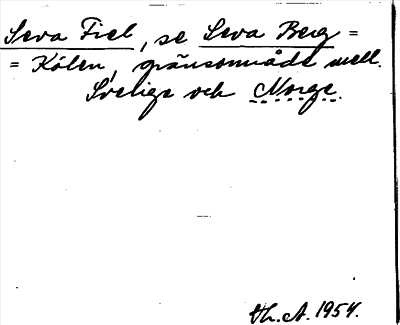 Seva Fiel, se Seva Berg =
= Kölen, gränsområde mell.
Sverige och Norge.
th. A. 1954.